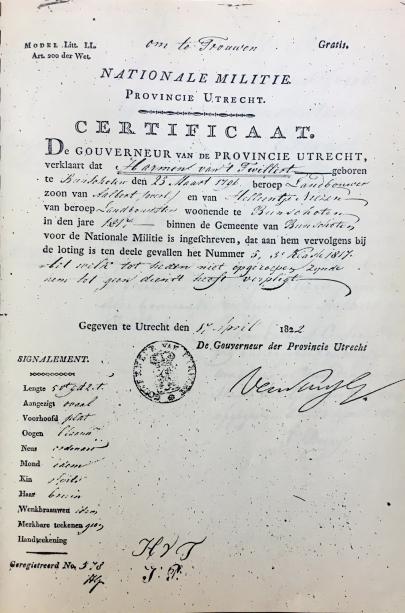 MODEL Litt. LL.
Art. 200 der Wet.
om te Trouwen
Gratis.
NATIONALE MILITIE.
PROVINCIE UTRECHT.
CERTIFICAAT.
DE GOUVERNEUR VAN DE PROVINCIE UTRECHT,
verklaart dat Harmen van 't Twillert geboren
te Bunschoten den 23 Maart 1796 beroep Landbouwer
zoon van Lubbert en van
van beroep Landbouwster woonende te Bunschoten
in den jare 1817 binnen de Gemeente van Bunschoten
voor de Nationale Militie is ingeschreven, dat aan hem vervolgens bij
de loting is ten deele gevallen het Nummer 5, 1817.
tot heden niet opgeroepen zynde
hem tot geen dienst heeft verpligt
Gegeven te Utrecht den 17 April 1822
De Gouverneur der Provincie Utrecht
SIGNALEMENT.
Lengte
Aangezigt ovaal
Voorhoofd plat
Oogen
Neus ordinair
Mond idem
Kin spits
Haar bruin
Wenkbraauwen idem
Merkbare teekenen geen
Handteekening
H v T
Geregistreerd No. 578